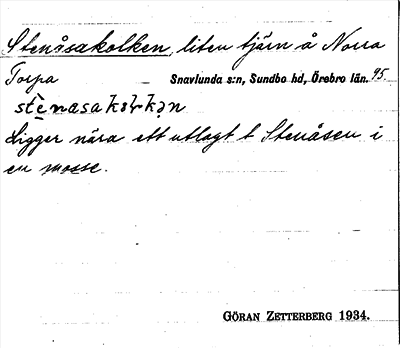 Stenåsakolken, liten tjärn å Norra
Torpa Snavlunda s:n, Sundbo hd, Örebro län. 95.
Ligger nära ett utlagt t Stenåsen i
en mosse.
GÖRAN ZETTERBERG 1934.